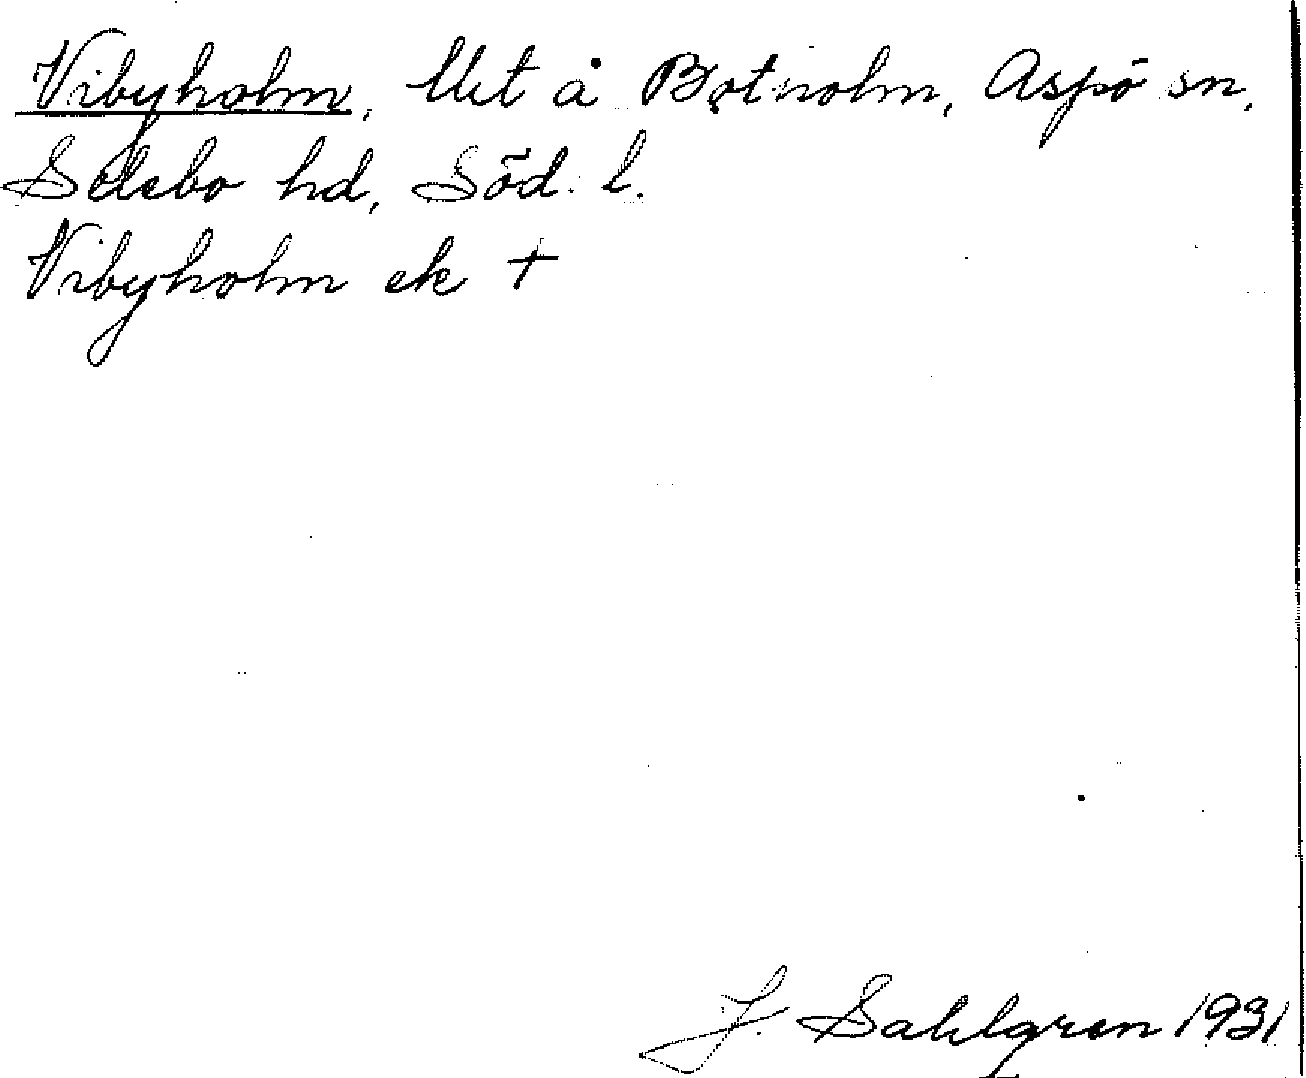 Vibyholm, Utä å Botholm, Aspö sn,
Selebo hd, Söd. l.
Vibyholm ek +
J. Sahlgren 1931